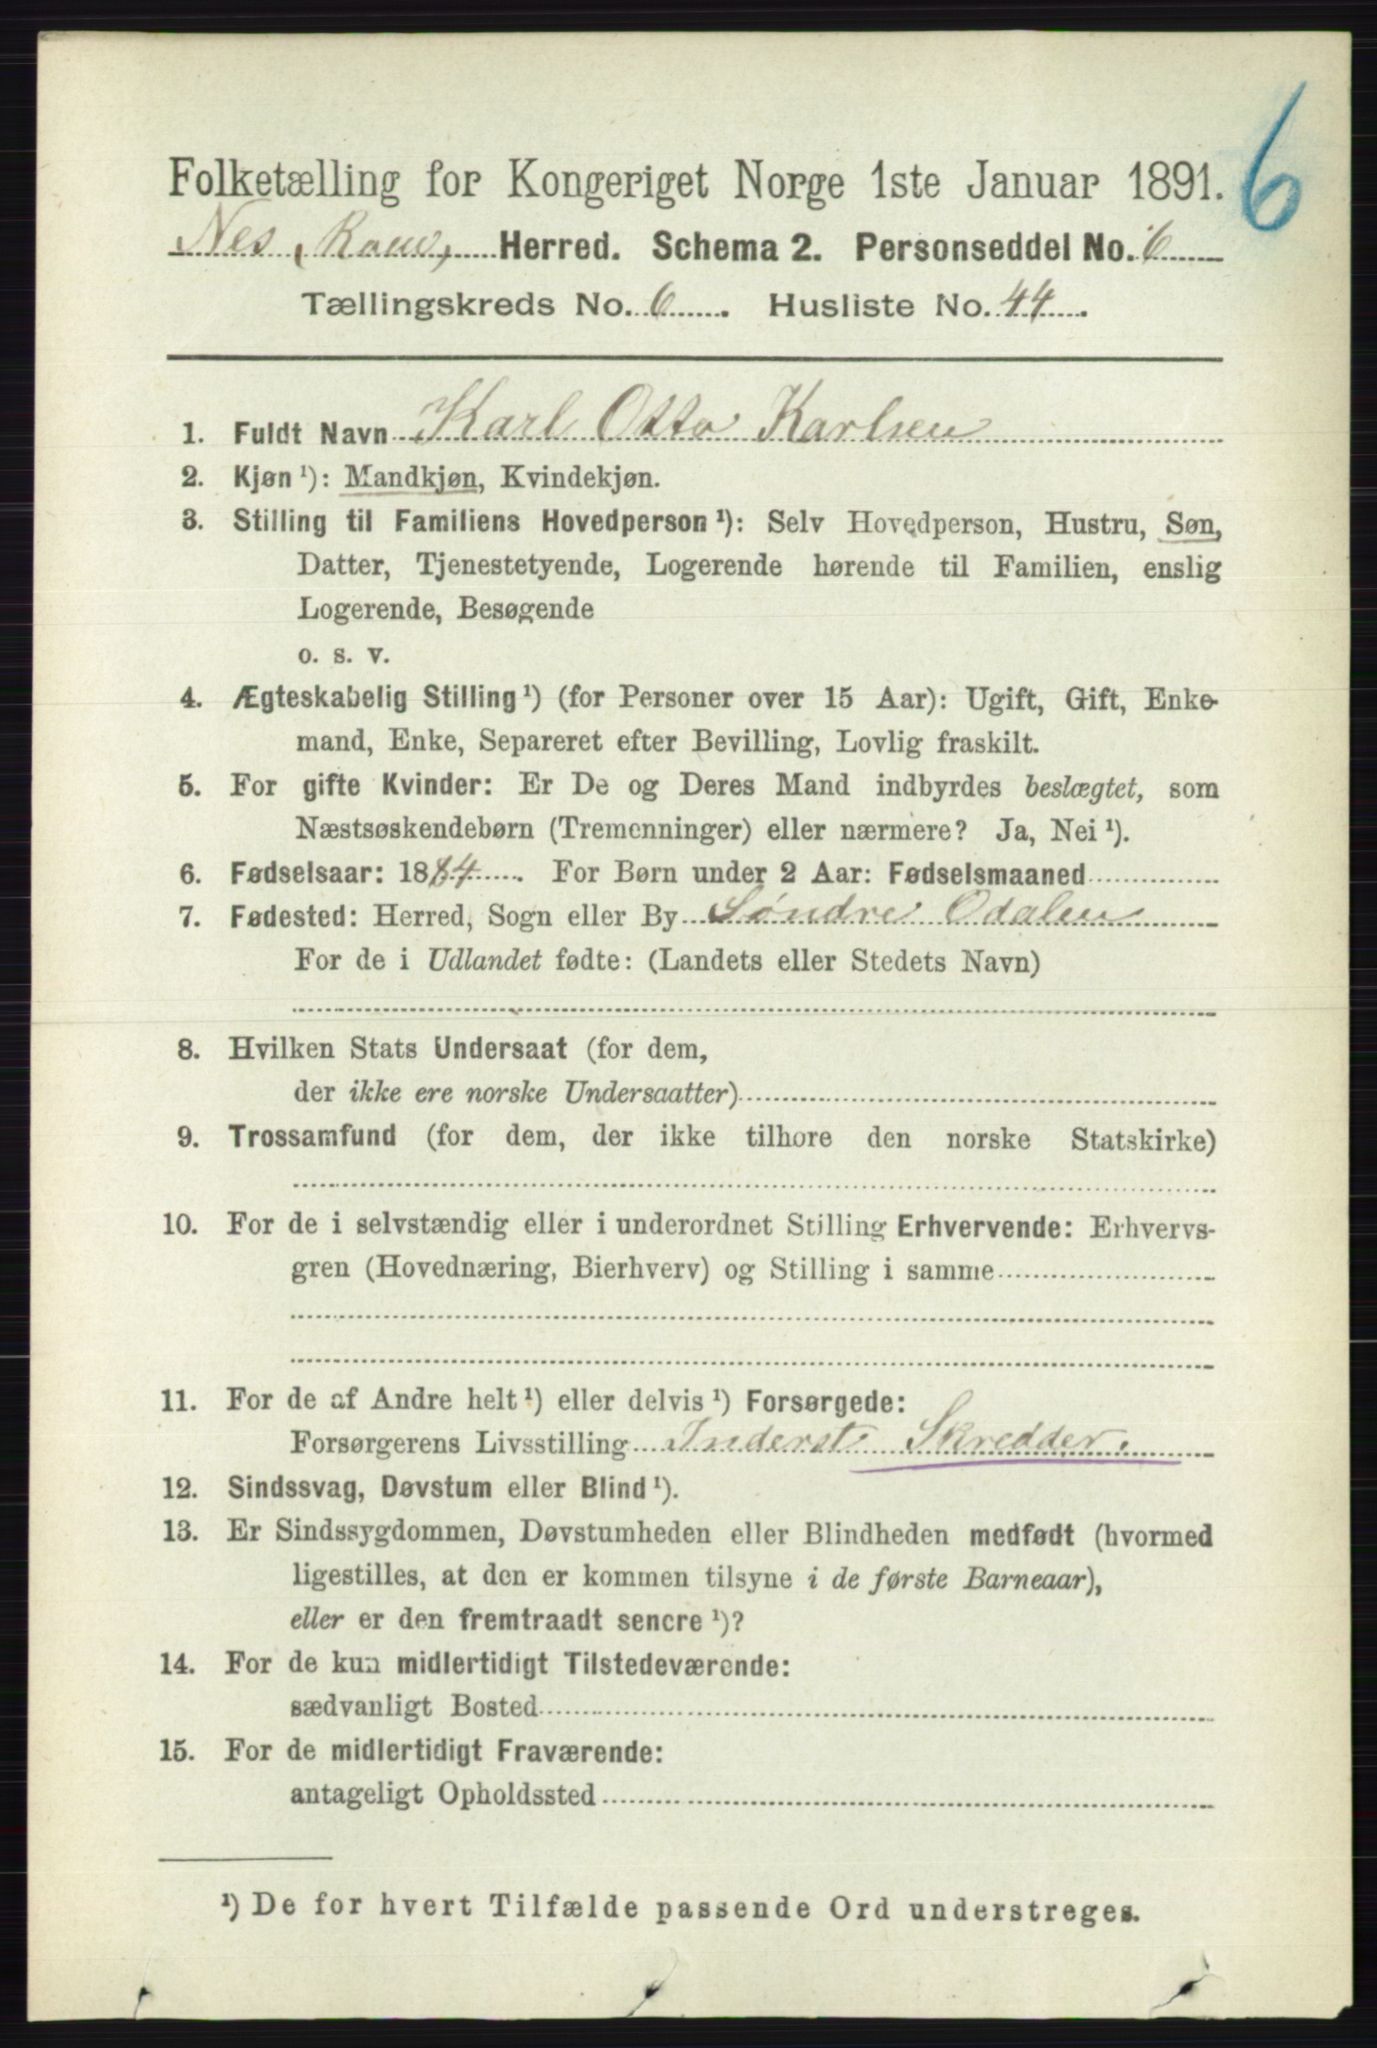 6
Folketælling for Kongeriget Norge 1ste Januar 1891.
Nes, Rom, Herred. Schema 2. Personseddel No. 6
Tællingskreds No. 6. Husliste No. 44.
1. Fuldt Navn Karl Otto Karlsen
2. Kjøn ¹): Mandkjøn, Kvindekjøn.
3. Stilling til Familiens Hovedperson ¹): Selv Hovedperson, Hustru, Søn,
Datter, Tjenestetyende, Logerende hørende til Familien, enslig
Logerende, Besøgende
o. s. v.
4. Ægteskabelig Stilling ¹) (for Personer over 15 Aar): Ugift, Gift, Enke-
mand, Enke, Separeret efter Bevilling, Lovlig fraskilt.
5. For gifte Kvinder: Er De og Deres Mand indbyrdes beslægtet, som
Næstsøskendebørn (Tremenninger) eller nærmere? Ja, Nei ¹).
6. Fødselsaar: 1884. For Børn under 2 Aar: Fødselsmaaned
7. Fødested: Herred, Sogn eller By Søndre Odalen
For de i Udlandet fødte: (Landets eller Stedets Navn)
8. Hvilken Stats Undersaat (for dem,
der ikke ere norske Undersaatter)
9. Trossamfund (for dem, der ikke tilhøre den norske Statskirke)
10. For de i selvstændig eller i underordnet Stilling Erhvervende: Erhvervs-
gren (Hovednæring, Bierhverv) og Stilling i samme
11. For de af Andre helt ¹) eller delvis ¹) Forsørgede:
Forsørgerens Livsstilling Inderst Skredder.
12. Sindssvag, Døvstum eller Blind ¹).
13. Er Sindssygdommen, Døvstumheden eller Blindheden medfødt (hvormed
ligestilles, at den er kommen tilsyne i de første Barneaar),
eller er den fremtraadt senere ¹)?
14. For de kun midlertidigt Tilstedeværende:
sædvanligt Bosted
15. For de midlertidigt Fraværende:
antageligt Opholdssted
¹) De for hvert Tilfælde passende Ord understreges.